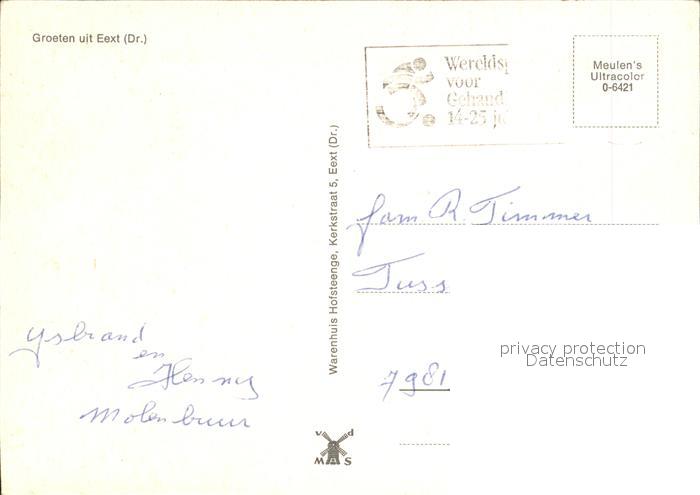 Groeten uit Eext (Dr.)
Wereldsp
voor
Gehand
14-25 ju
Meulen's
Ultracolor
0-6421
Warenhuis Hofsteenge, Kerkstraat 5, Eext (Dr.)
fam R. Timmer
Tuss
7981
privacy protection
Datenschutz
Ysbrand
en
Henny
Molenbuur
v d
MAS